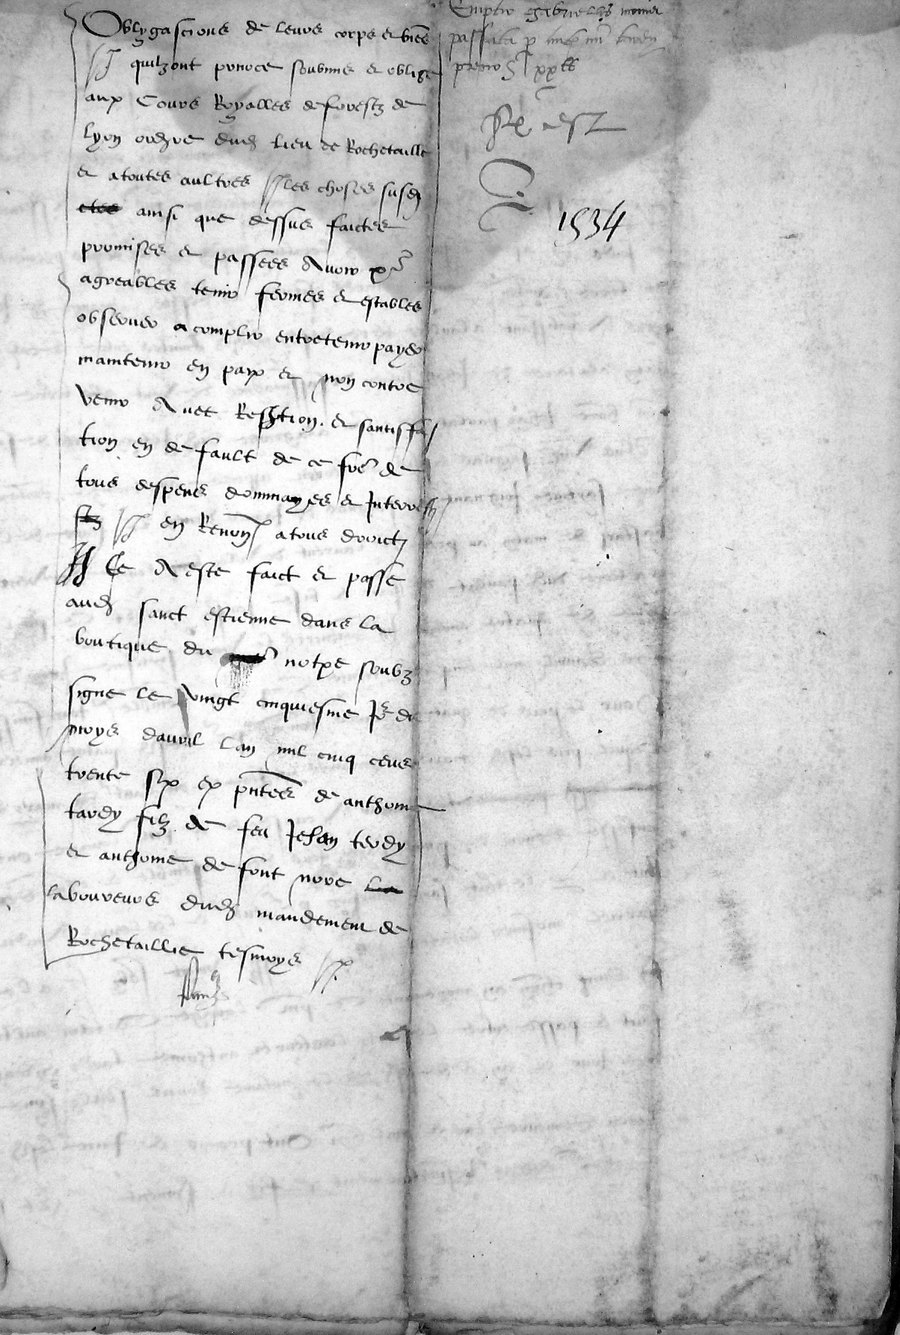 Oblygascions de leurs corps et biens
quilzont pour ce soubmis et oblige
aux Cours Royalles de forestz de
lyon ordre dud lieu de Rochetaille
et a toutes aultres les choses susd
ctes ainsi que dessus faictes
promises et passees Avoir
agreables tenir fermes et estables
observer acomplir entretenir payer
maintenir en paix et non contre
venir Avec Restion et santisfa
tion en default de ce fre de
tous despens dommages et Interestz
en Renon a tous droictz
Ce A este faict et passe
aud sanct estienne dans la
boutique du notre soubz
signe le vingt cinquiesme Jr du
moys davril lan mil cinq cens
trente six en pntes de anthoine
tardy filz de feu Jehan terdy
et anthoine de font nove
laboureurs dud mandement de
Rochetaillie tesmoyes
Emptio
passata p
precio xx
Re est
1534